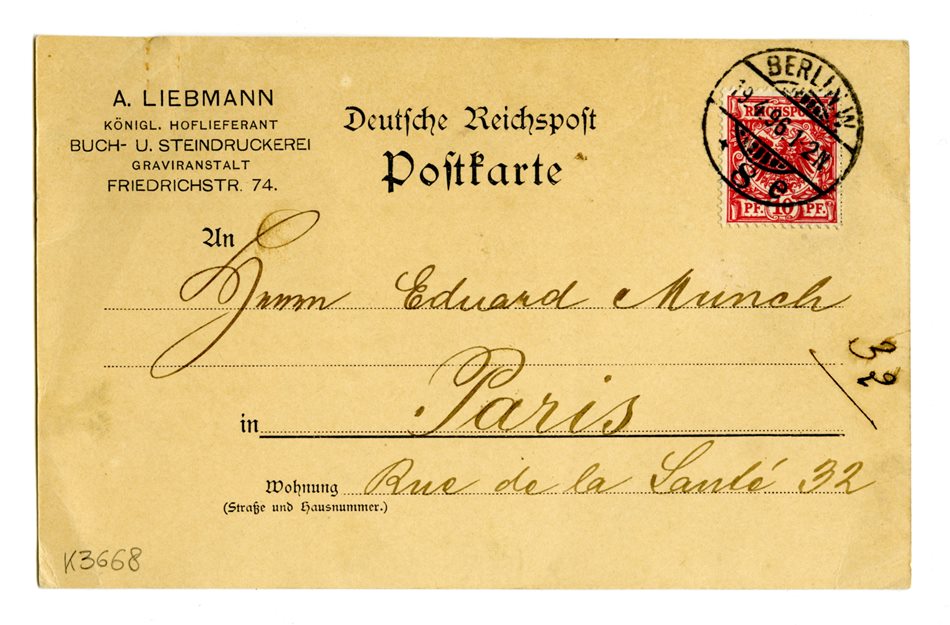 A. LIEBMANN
KÖNIGL. HOFLIEFERANT
BUCH- U. STEINDRUCKEREI
GRAVIRANSTALT
FRIEDRICHSTR. 74.
Deutsche Reichspost
Postkarte
BERLIN.W
19.4.96.1-2N.
8 e
REICHSPOST
PF. 10 PF.
An
Herrn Eduard Munch
32
in Paris
Wohnung Rue de la Santé 32
(Straße und Hausnummer.)
K3668